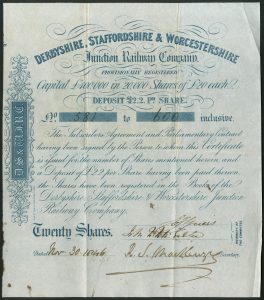 DERBYSHIRE, STAFFORDSHIRE & WORCESTERSHIRE
Junction Railway Company.
PROVISIONALLY REGISTERED
Capital £400,000 in 20,000 Shares of £20 each
DEPOSIT £2.2. Pr SHARE.
No 581 to 600 inclusive.
The Subscribers Agreement and Parliamentary Contract
having been signed by the Person to whom this Certificate
is issued for the number of Shares mentioned herein, and
Deposit of £2.2. Per Share having been paid thereon,
the Shares have been registered in the Books of the
Derbyshire Staffordshire & Worcestershire Junction
Railway Company.
Twenty Shares.
Dated Nov 30 1846
Secretary.
MEMBERS OF
THE COMMITTEE
D.S & W.J.R.C.